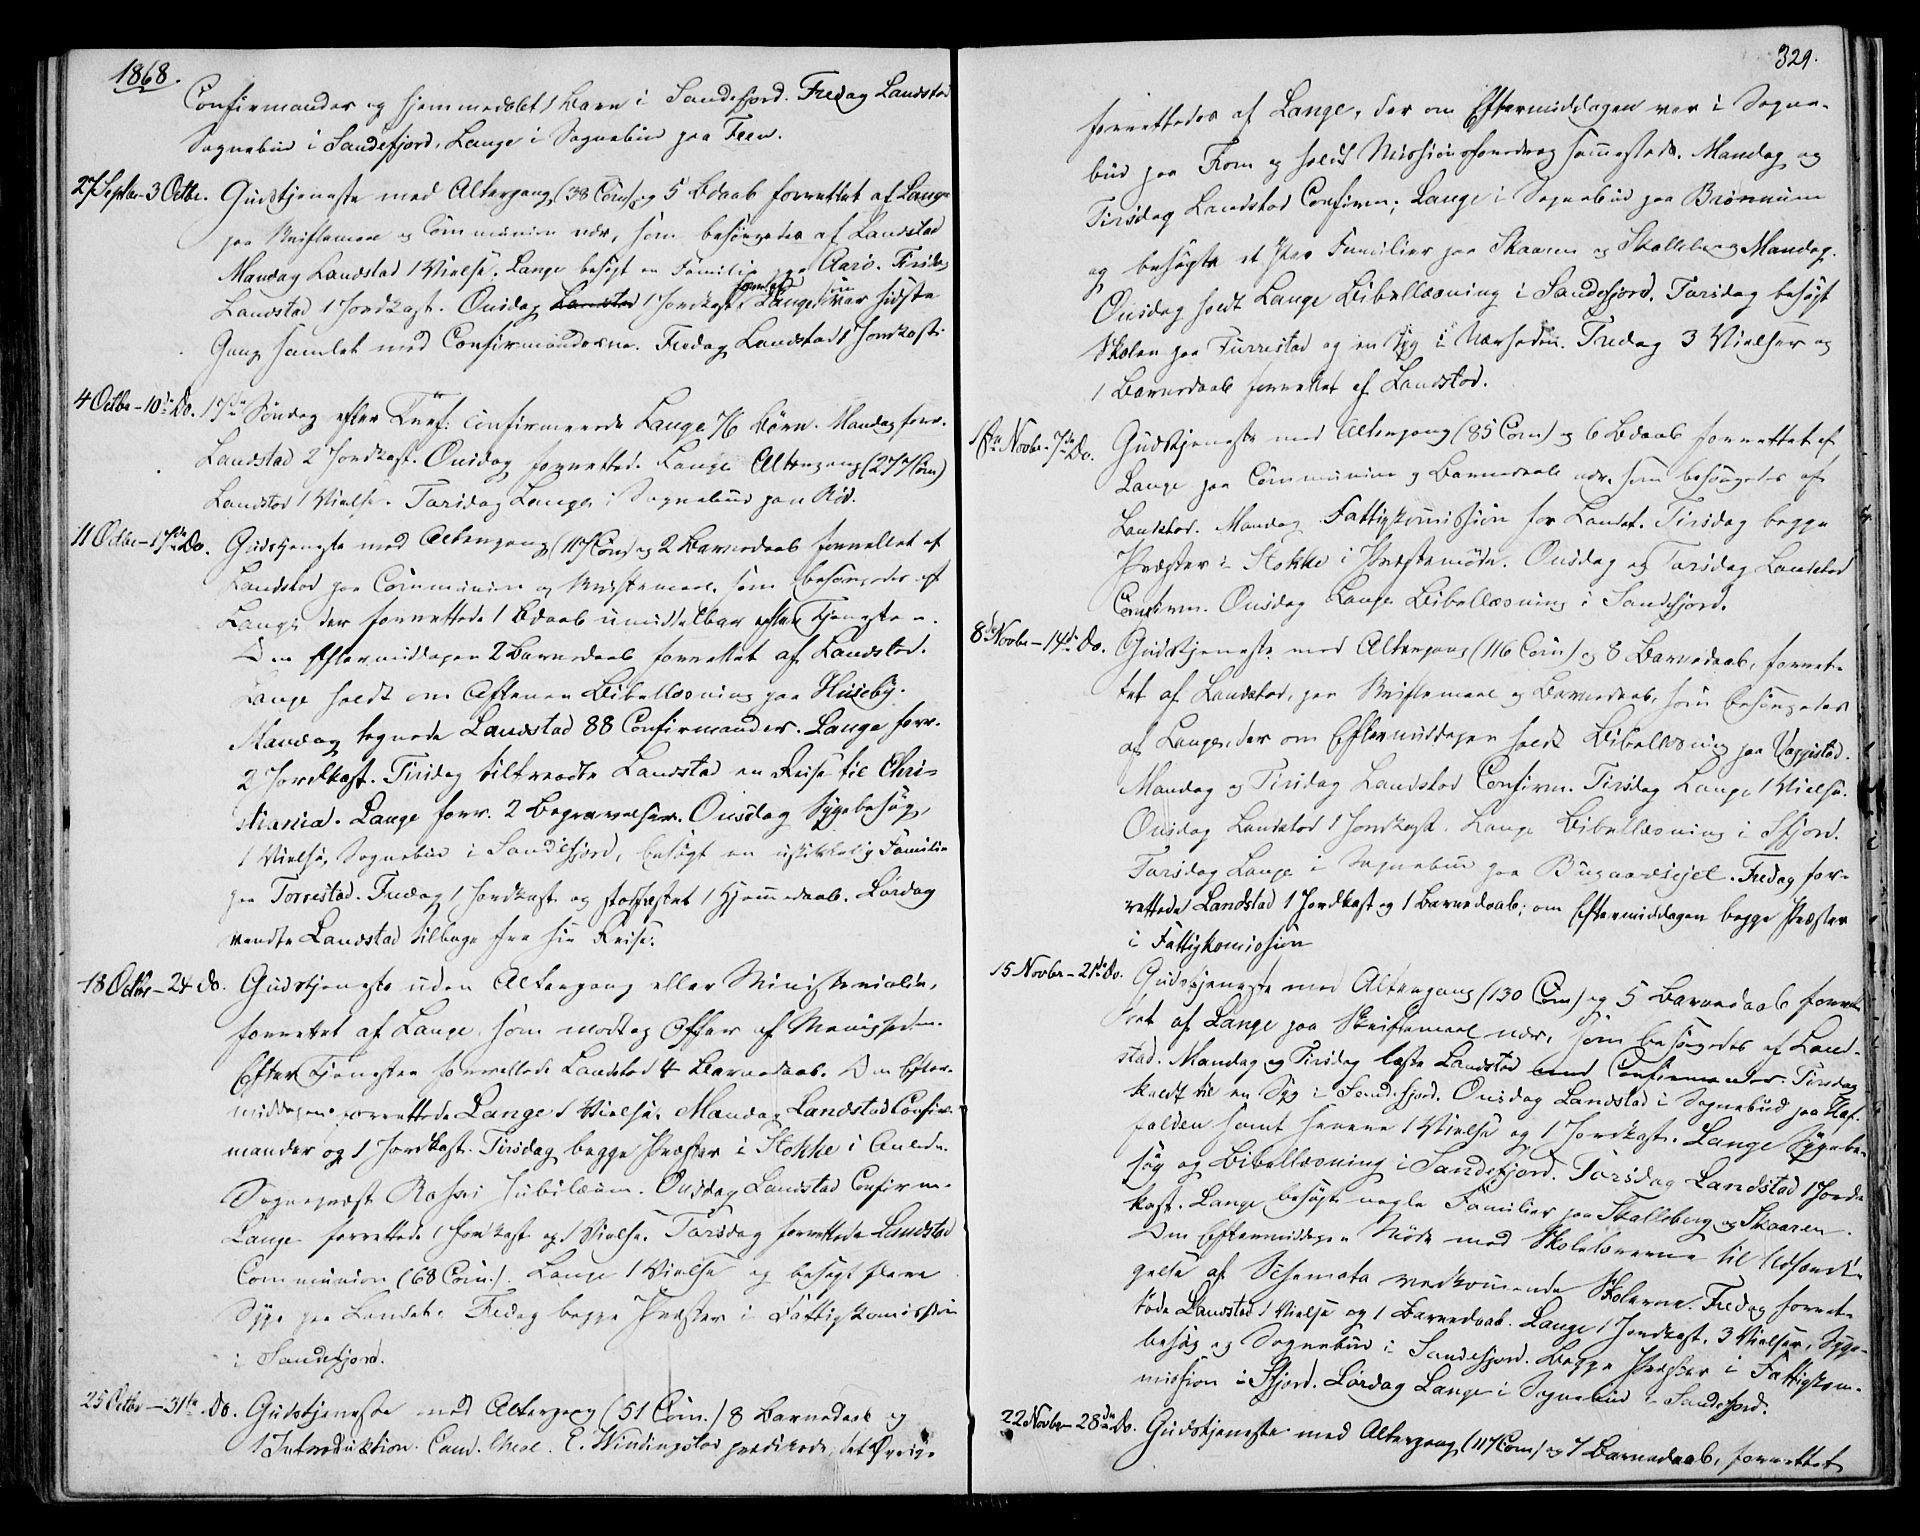 1868.
Confirmander og hjemmedøbt 1 Barn i Sandefjord. Fredag Landstad
Sognebud i Sandefjord, Lange i Sognebud paa Feen.
27 Septbr - 3 Octbr. Gudstjeneste med Altergang (38 Com) og 5 Bdaab forrettet af Lange
paa Skriftemaal og Communion nær, som besørgedes af Landstad
Mandag Landstad 1 Vielse. Lange besøgt en Familie paa Aarø. Tirsdag
Landstad 1 Jordkast. Onsdag Landstad 1 Jordkast, Lange var sidste
Gang samlet med Confirmanderne. Fredag Landstad 1 Jordkast.
4 Octbr - 10de Do. 17de Søndag efter Tref: confirmerede Lange 76 Børn. Mandag forr.
Landstad 2 Jordkast. Onsdag forrettede Lange Altergang (277 Com)
Landstad 1 Vielse. Torsdag Lange i Sognebud paa Rød.
11 Octbr - 17de Do. Gudstjeneste med Altergang (117 Com) og 2 Barnedaab forrettet af
Landstad paa Communion og Skriftemaal, som besørgedes af
Lange der forrettede 1 Bdaab umiddelbar efter Tjenesten.
Om Eftermiddagen 2 Barnedaab forrettet af Landstad.
Lange holdt om Aftenen Bibellæsning paa Huseby.
Mandag tegnede Landstad 88 Confirmander. Lange forr.
2 Jordkast. Tirsdag tiltraadte Landstad en Reise til Chri-
stiania. Lange forr. 2 Begravelser. Onsdag Sygebesøg,
1 Vielse, Sognebud i Sandefjord, besøgt en uskikkelig Familie
paa Torrestad. Fredag 1 Jordkast og stadfæstet 1 Hjemmedaab. Lørdag
vendte Landstad tilbage fra sin Reise.
18 Octbr - 24 Do. Gudstjeneste uden Altergang eller Ministerialia,
forrettet af Lange, som modtog Offer af Menigheden.
Efter Tjenesten forrettede Landstad 4 Barnedaab. Om Efter-
middagen forrettede Lange 1 Vielse. Mandag Landstad Confir-
mander og 1 Jordkast. Tirsdag begge Præster i Stokke i Anledn.
Sognepræst Jubilæum. Onsdag Landstad Confirm.
Lange forrettede 1 Jordkast og 1 Vielse. Torsdag forrettede Landstad
Communion (68 Com.). Lange 1 Vielse og besøgt flere
Syge paa Landet. Fredag begge Præster i Fattigkomission
i Sandefjord.
25 Octbr - 31te Do. Gudstjeneste med Altergang (51 Com.) 8 Barnedaab og
1 Introduktion. Cand. theol. E. Windingstad prædikede, det Øvrige
329.
forrettedes af Lange, der om Eftermiddagen var i Sogne-
bud paa Fram og holdt Missionsforedrag sammesteds. Mandag og
Tirsdag Landstad Confirm; Lange i Sognebud paa Brønnum
og besøgte et Par Familier paa Skaaren og Skalleberg Mandag.
Onsdag holdt Lange Bibellæsning i Sandefjord. Torsdag besøgt
Skolen paa Furrestad og en Syg i Nærheden. Fredag 3 Vielser og
1 Barnedaab forrettet af Landstad.
1ste Novbr - 7de Do. Gudstjeneste med Altergang (85 Com) og 6 Bdaab forrettet af
Lange paa Communion og Barnedaab nær, som besørgedes af
Landstad. Mandag Fattigkomission for Landet. Tirsdag begge
Præster i Stokke i Præstemøde. Onsdag og Torsdag Landstad
Confirm. Onsdag Lange Bibellæsning i Sandefjord.
8de Novbr - 14de Do. Gudstjeneste med Altergang (116 Com) og 8 Barnedaab, forret-
tet af Landstad, paa Skriftemaal og Barnedaab, som besørgedes
af Lange, der om Eftermiddagen holdt Bibellæsning paa Vaggestad.
Mandag og Tirsdag Landstad Confirm. Tirsdag Lange 1 Vielse.
Onsdag Landstad 1 Jordkast. Lange Bibellæsning i Sfjord.
Torsdag Lange i Sognebud paa Bugaardsejet. Fredag for-
rettede Landstad 1 Jordkast og 1 Barnedaab; om Eftermiddagen begge Præster
i Fattigkomission
15 Novbr - 21de Do. Gudstjeneste med Altergang (130 Com) og 5 Barnedaab forret-
tet af Lange paa Skriftemaal nær, som besørgedes af Land-
stad. Mandag og Tirsdag læste Landstad med Confirmander. Tirsdag
kaldt til en Syg i Sandefjord. Onsdag Landstad i Sognebud paa
samt senere 1 Vielse og 1 Jordkast. Lange Sygebe-
søg og Bibellæsning i Sandefjord. Torsdag Landstad 1 Jord-
kast. Lange besøgte nogle Familier paa Skalleberg og Skaaren.
Om Eftermiddagen Møde med Skolelærerne til Udfærdi-
gelse af Schemata vedkommende Skolerne. Fredag forret-
tede Landstad 1 Vielse og 1 Barnedaab. Lange 1 Jordkast, 3 Vielser, Syge-
besøg og Sognebud i Sandefjord. Begge Præster i Fattigkom-
mission i Sfjord. Lørdag Lange i Sognebud i Sandefjord.
22 Novbr - 28de Do. Gudstjeneste med Altergang (117 Com) og 7 Barnedaab, forrettet